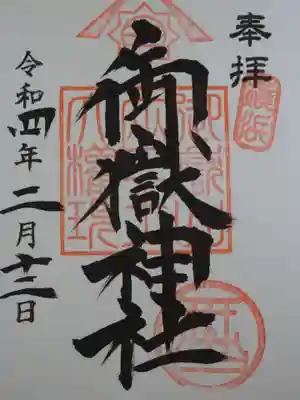 奉拝
御嶽神社
令和四年二月十二日